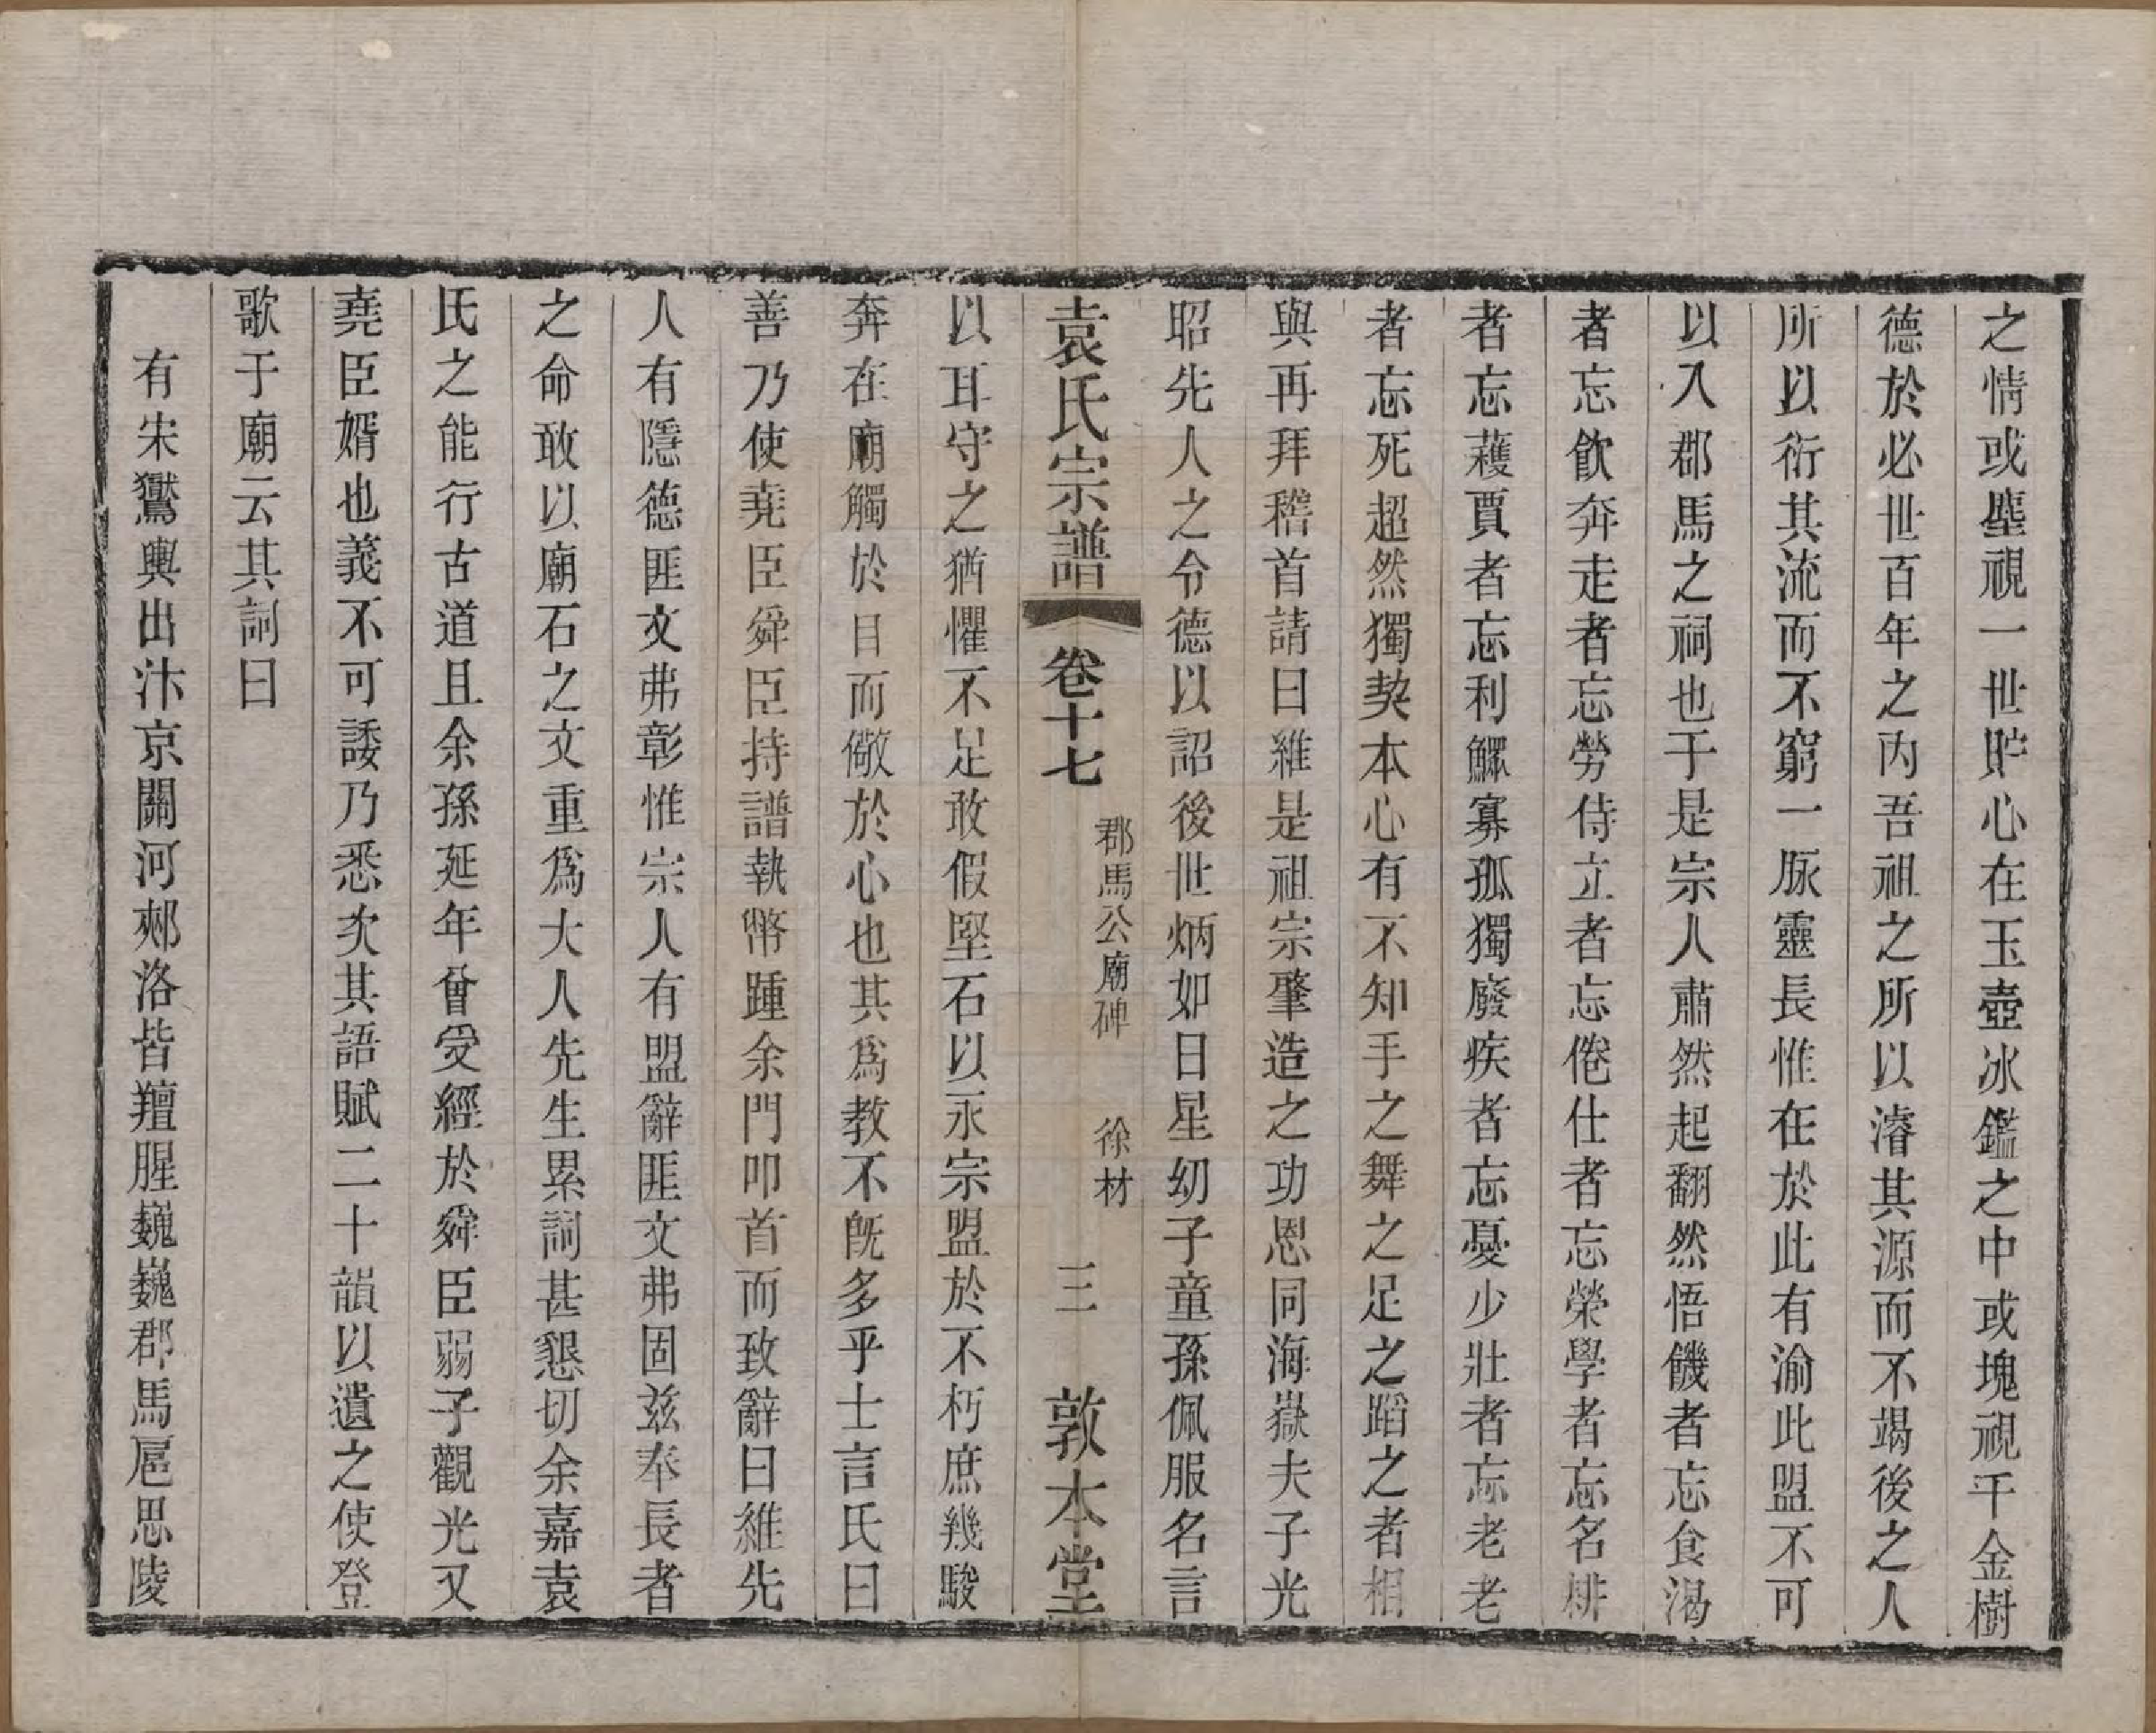 之情或塵視一世貯心在玉壺冰鑑之中或塊視千金樹
德於必世百年之內吾祖之所以濬其源而不竭後之人
所以衍其流而不窮一脉靈長惟在於此有渝此盟不可
以入郡馬之祠也于是宗人肅然起翻然悟饑者忘食渴
者忘飲奔走者忘勞侍立者忘倦仕者忘榮學者忘名耕
者忘穫賈者忘利鰥寡孤獨廢疾者忘憂少壯者忘老老
者忘死超然獨契本心有不知手之舞之足之蹈之者相
與再拜稽首請曰維是祖宗肇造之功恩同海嶽夫子光
昭先人之令德以詔後世炳如日星幼子童孫佩服名言
袁氏宗譜 卷十七 郡馬公廟碑 徐材 三 敦本堂
以耳守之猶懼不足敢假堅石以永宗盟於不朽庶幾駿
奔在廟觸於目而儆於心也其爲教不旣多乎士言氏曰
善乃使堯臣舜臣持譜執幣踵余門叩首而致辭曰維先
人有隱德匪文弗彰惟宗人有盟辭匪文弗固兹奉長者
之命敢以廟石之文重爲大人先生累詞甚懇切余嘉袁
氏之能行古道且余孫延年曾受經於舜臣弱子觀光又
堯臣婿也義不可諉乃悉次其語賦二十韻以遺之使登
歌于廟云其詞曰
有宋鸑輿出汴京關河郟洛皆羶腥巍巍郡馬扈思陵